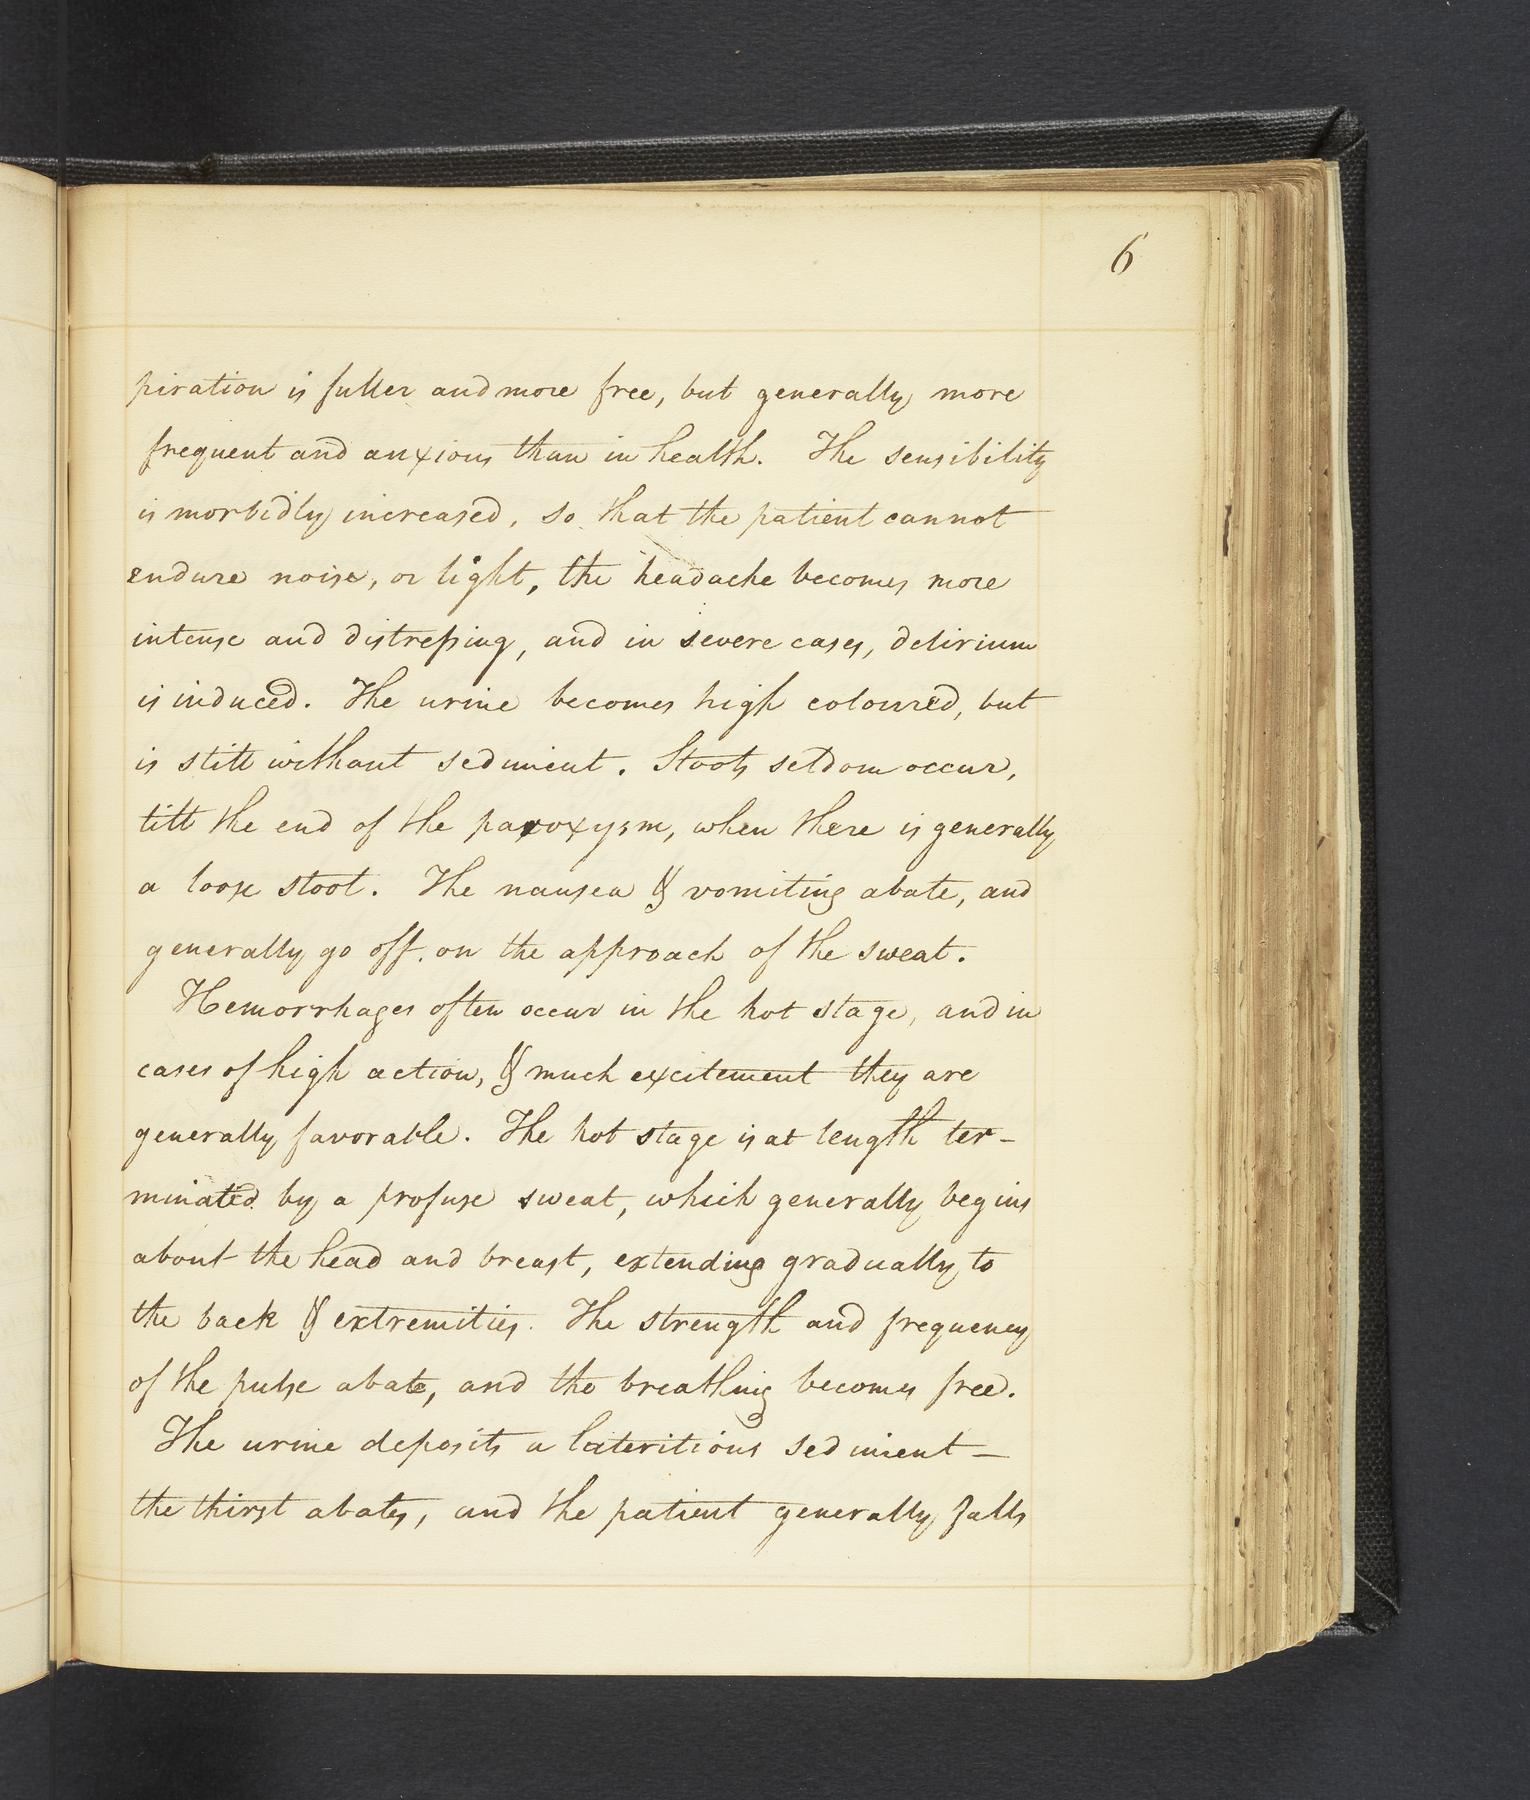 6
piration is fuller and more free, but generally more
frequent and anxious than in health. The sensibility
is morbidly increased, so that the patient cannot
endure noise, or light, the headache becomes more
intense and distressing, and in severe cases, delirium
is induced. The urine becomes high coloured, but
is still without sediment. Stools seldom occur,
till the end of the paroxysm, when there is generally
a loose stool. The nausea & vomiting abate, and
generally go off on the approach of the sweat.
Hemorrhages often occur in the hot stage, and in
cases of high action, & much excitement they are
generally favorable. The hot stage is at length ter-
minated by a profuse sweat, which generally begins
about the head and breast, extending gradually to
the back & extremities. The strength and frequency
of the pulse abate, and the breathing becomes free.
The urine deposits a lateritious sediment —
the thirst abates, and the patient generally falls